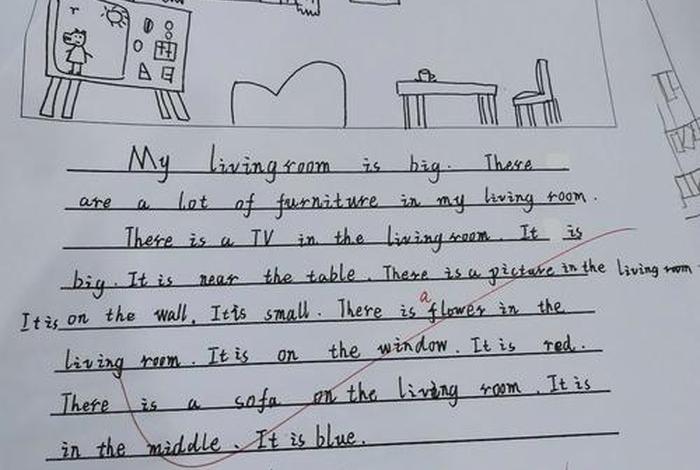 My living room is big. There
are a lot of furniture in my living room.
There is a TV in the living room. It is
big. It is near the table. There is a picture in the living room
It is on the wall. It is small. There is a flower in the
living room. It is on the window. It is red.
There is a sofa on the living room. It is
in the middle. It is blue.